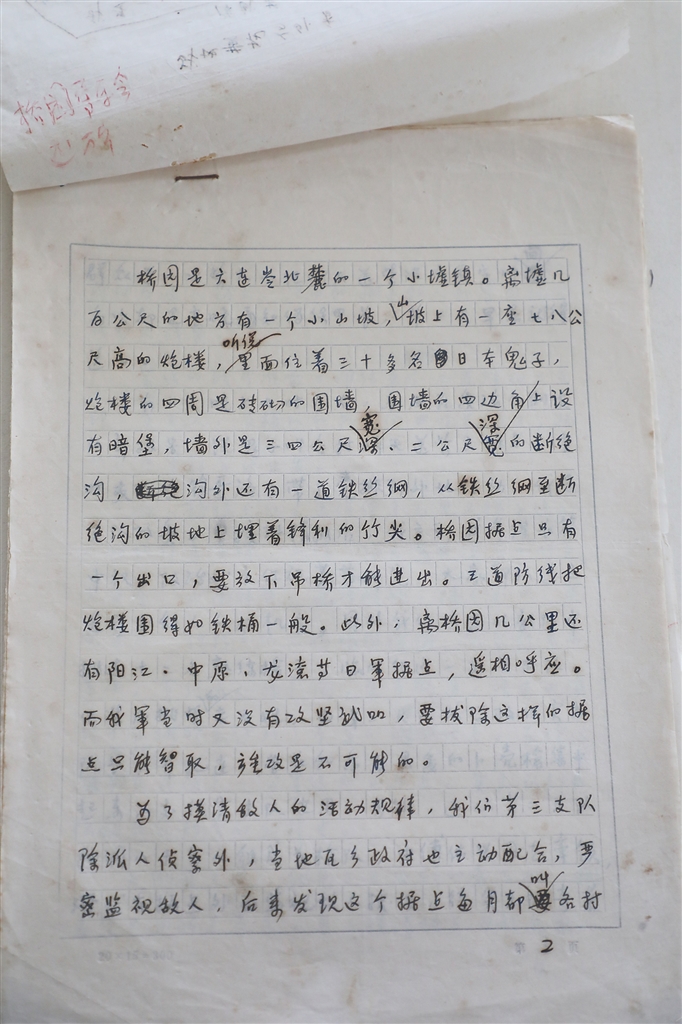 桥园
桥园是六连岭北麓的一个小墟镇。离墟几
百公尺的地方有一个小山坡,山坡上有一座七八公
尺高的炮楼,听说里面住着三十多名日本鬼子,
炮楼的四周是砖砌的围墙,围墙的四边角上设
有暗堡,墙外是三四公尺宽、二公尺深的断绝
沟,沟外还有一道铁丝网,从铁丝网至断
绝沟的坡地上埋着锋利的竹尖。桥园据点只有
一个出口,要放下吊桥才能进出。三道防线把
炮楼围得如铁桶一般。此外,离桥园几公里还
有阳江、中原、龙滚等日军据点,遥相呼应。
而我军当时又没有攻坚武器,要拔除这样的据
点只能智取,强攻是不可能的。
为了摸清敌人的活动规律,我们第三支队
除派人侦察外,当地瓦乡政府也主动配合,严
密监视敌人,后来发现这个据点每月都叫各村
2